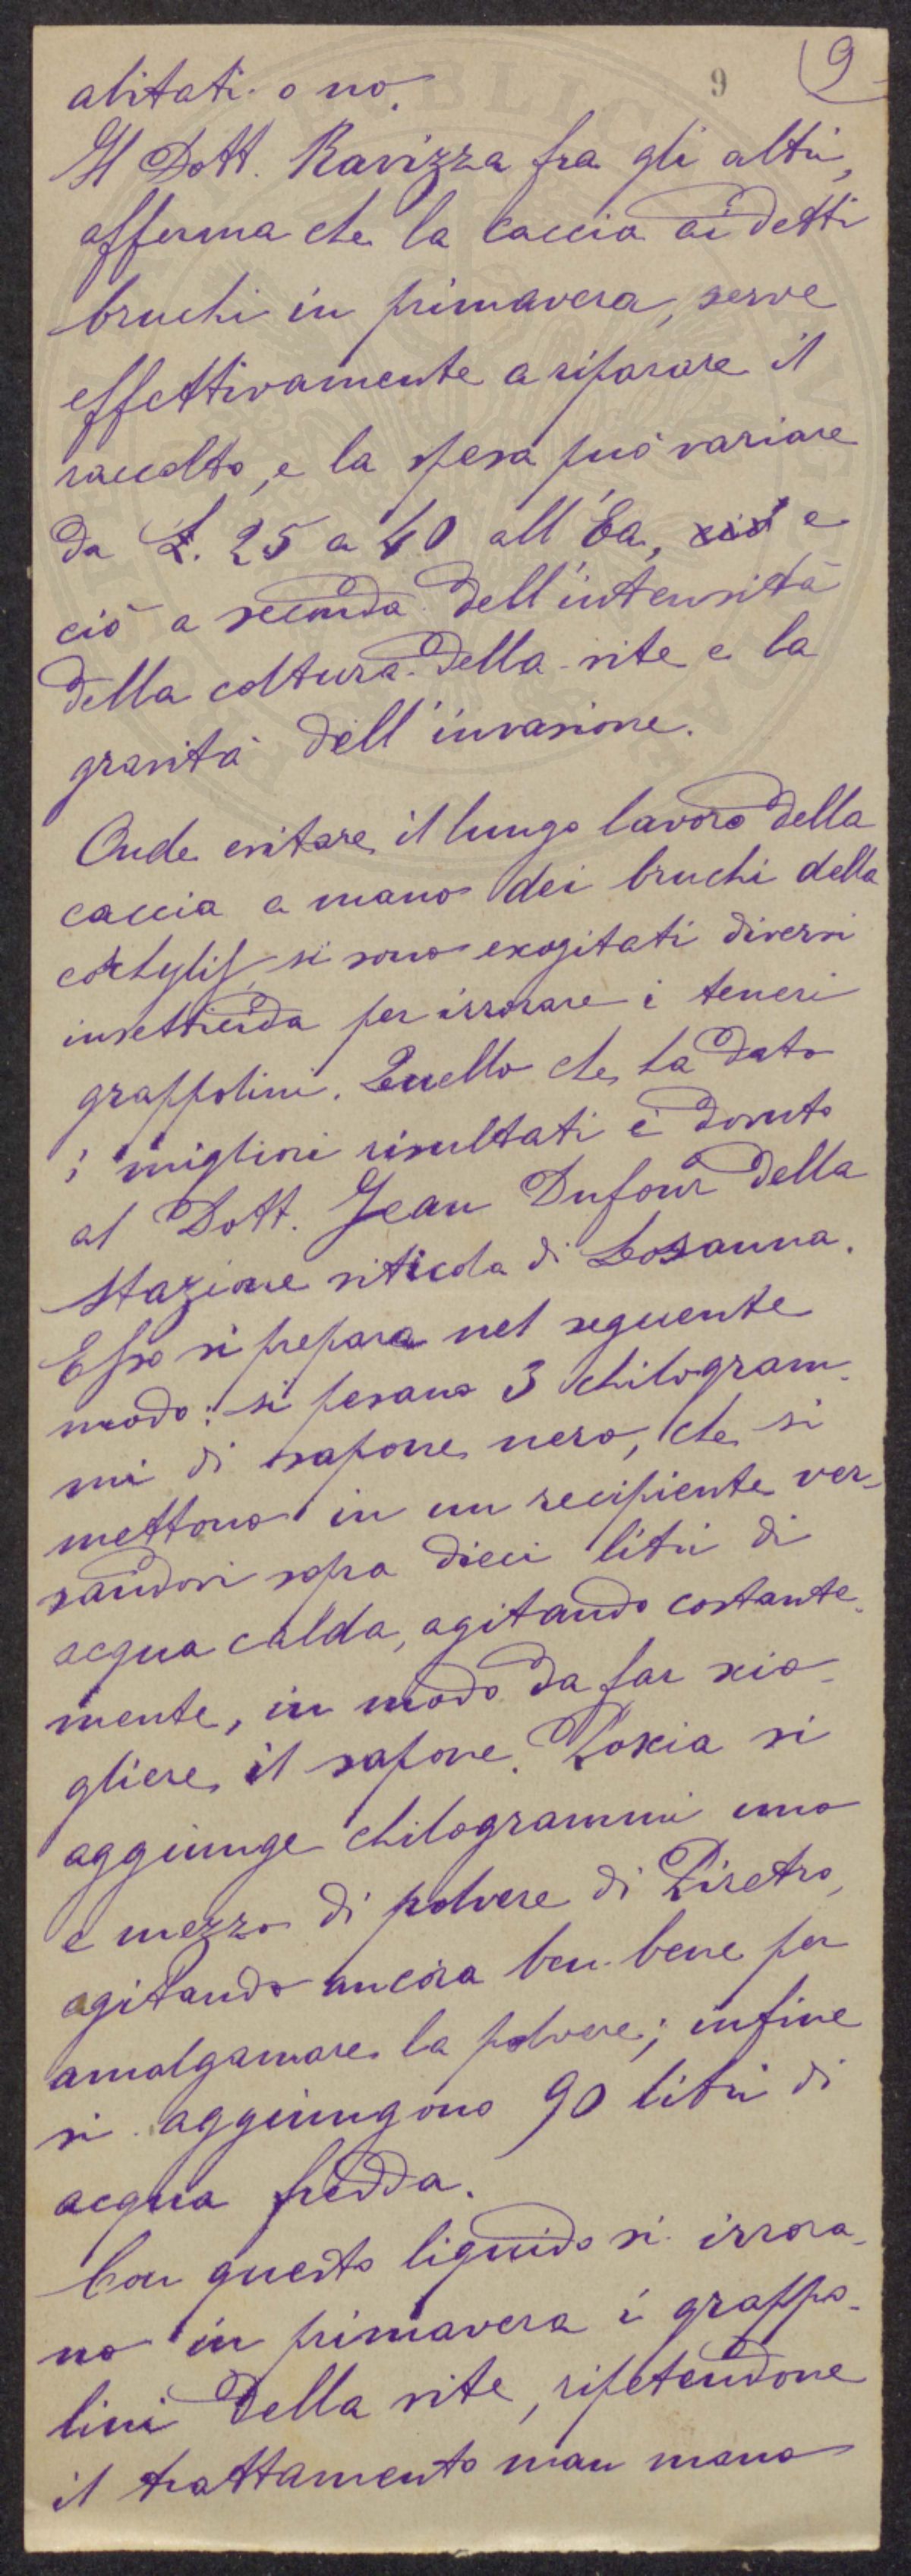 9 9
abitati o no.
Il Dott. Ravizza fra gli altri,
afferma che la caccia ai detti
bruchi in primavera, serve
effettivamente a riparare il
raccolto, e la spesa può variare
da L. 25 a 40 all'Ea, e
ciò a seconda dell'intensità
della coltura della vite e la
gravità dell'invasione.
Onde evitare il lungo lavoro della
caccia a mano dei bruchi della
cochylis, si sono escogitati diversi
insetticida per irrorare i teneri
grappolini. Quello che ha dato
i migliori risultati è dovuto
al Dott. Jean Dufour della
Stazione viticola di Losanna.
Esso si prepara nel seguente
modo: si pesano 3 chilogram-
mi di sapone nero, che si
mettono in un recipiente ver-
sandovi sopra dieci litri di
acqua calda, agitando costante-
mente, in modo da far scio-
gliere il sapone. Poscia si
aggiunge chilogrammi uno
e mezzo di polvere di Piretro,
agitando ancora ben bene per
amalgamare la polvere; infine
si aggiungono 90 litri di
acqua fredda.
Con questo liquido si irrora-
no in primavera i grappo-
lini della vite, ripetendone
il trattamento man mano